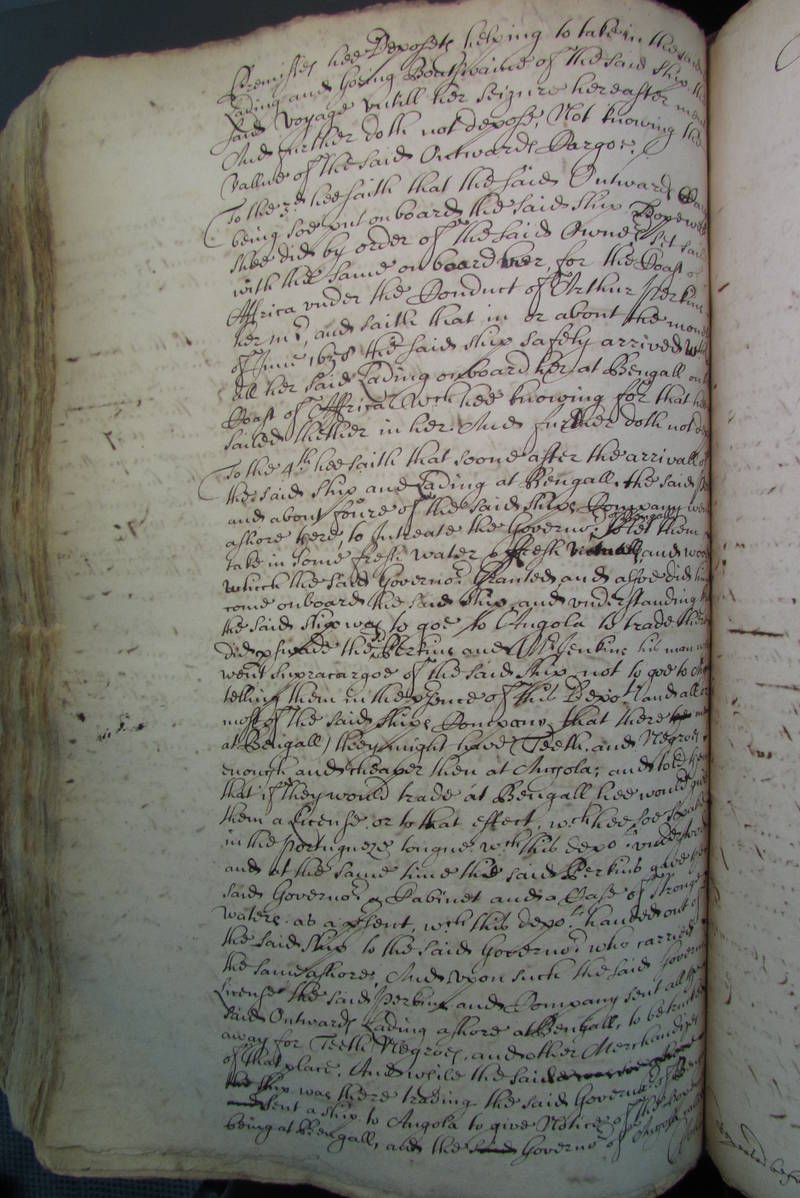 Premisses hee Deposeth helping to take in the said
Lading and Goeing Boatswaine of the said ship the
said voyage untill her seizure hereafter men
And further doth not depose, Not knowing the
vallue of the said Outwards Cargoe.
To the 3d hee saith that the said Outwards Car
being soe put on board the said ship Hopewell
shee did by order of the said Owners set sail
with the same on board her, for the Coast of
Affrica under the Conduct of Arthur Perkins
her mr, and saith that in or about the month
of June 1658 the said ship safely arrived with
all her said Lading on board her at Bengall on the
Coast of Affrica wch hee knowing for that hee
sailed thither in her And further doth not de
To the 4th hee saith that soone after the arrivall of
the said ship and Lading at Bengall, the said
and about foure of the said ships Company went
ashore there to Intreate the Governor of Bengall to let them
take in some fresh water fresh victuall, and wood
which the said Governor Granted and alsoe did
come on board the said ship and understanding that
the said ship was to goe to Angola to trade there
did pswade the sd Perkins and Wm Jenkins his man who
went supracargoe of the said ship not to goe to
telling them in the psence of this Depot and all or
most of the said ships Company that there
at Bengall) they might have Teeth and Negroes
enough and cheaper then at Angola; and told them
that if they would trade at Bengall hee would give
them a License, or to that effect, wch hee soe spake
in the Portugueze tongue wch this depot understood
and at the same time the said Perkins gave the
said Governor a Cabinet and a Case of strong
waters as a psent, wch this depot handed out of
the said ship to the said Governor who carried
the same ashore, And upon such the said Governors
License the said Perkins and Company sent all the
said Outwards Lading ashore at Bengall, to be trucked
away for Teeth Negroes, and other Merchandizes
of that place. And while the said
ship was there trading the said Governor of
sent a ship to Angola to give Notice of the
being at Bengall, and the Governor of Angola